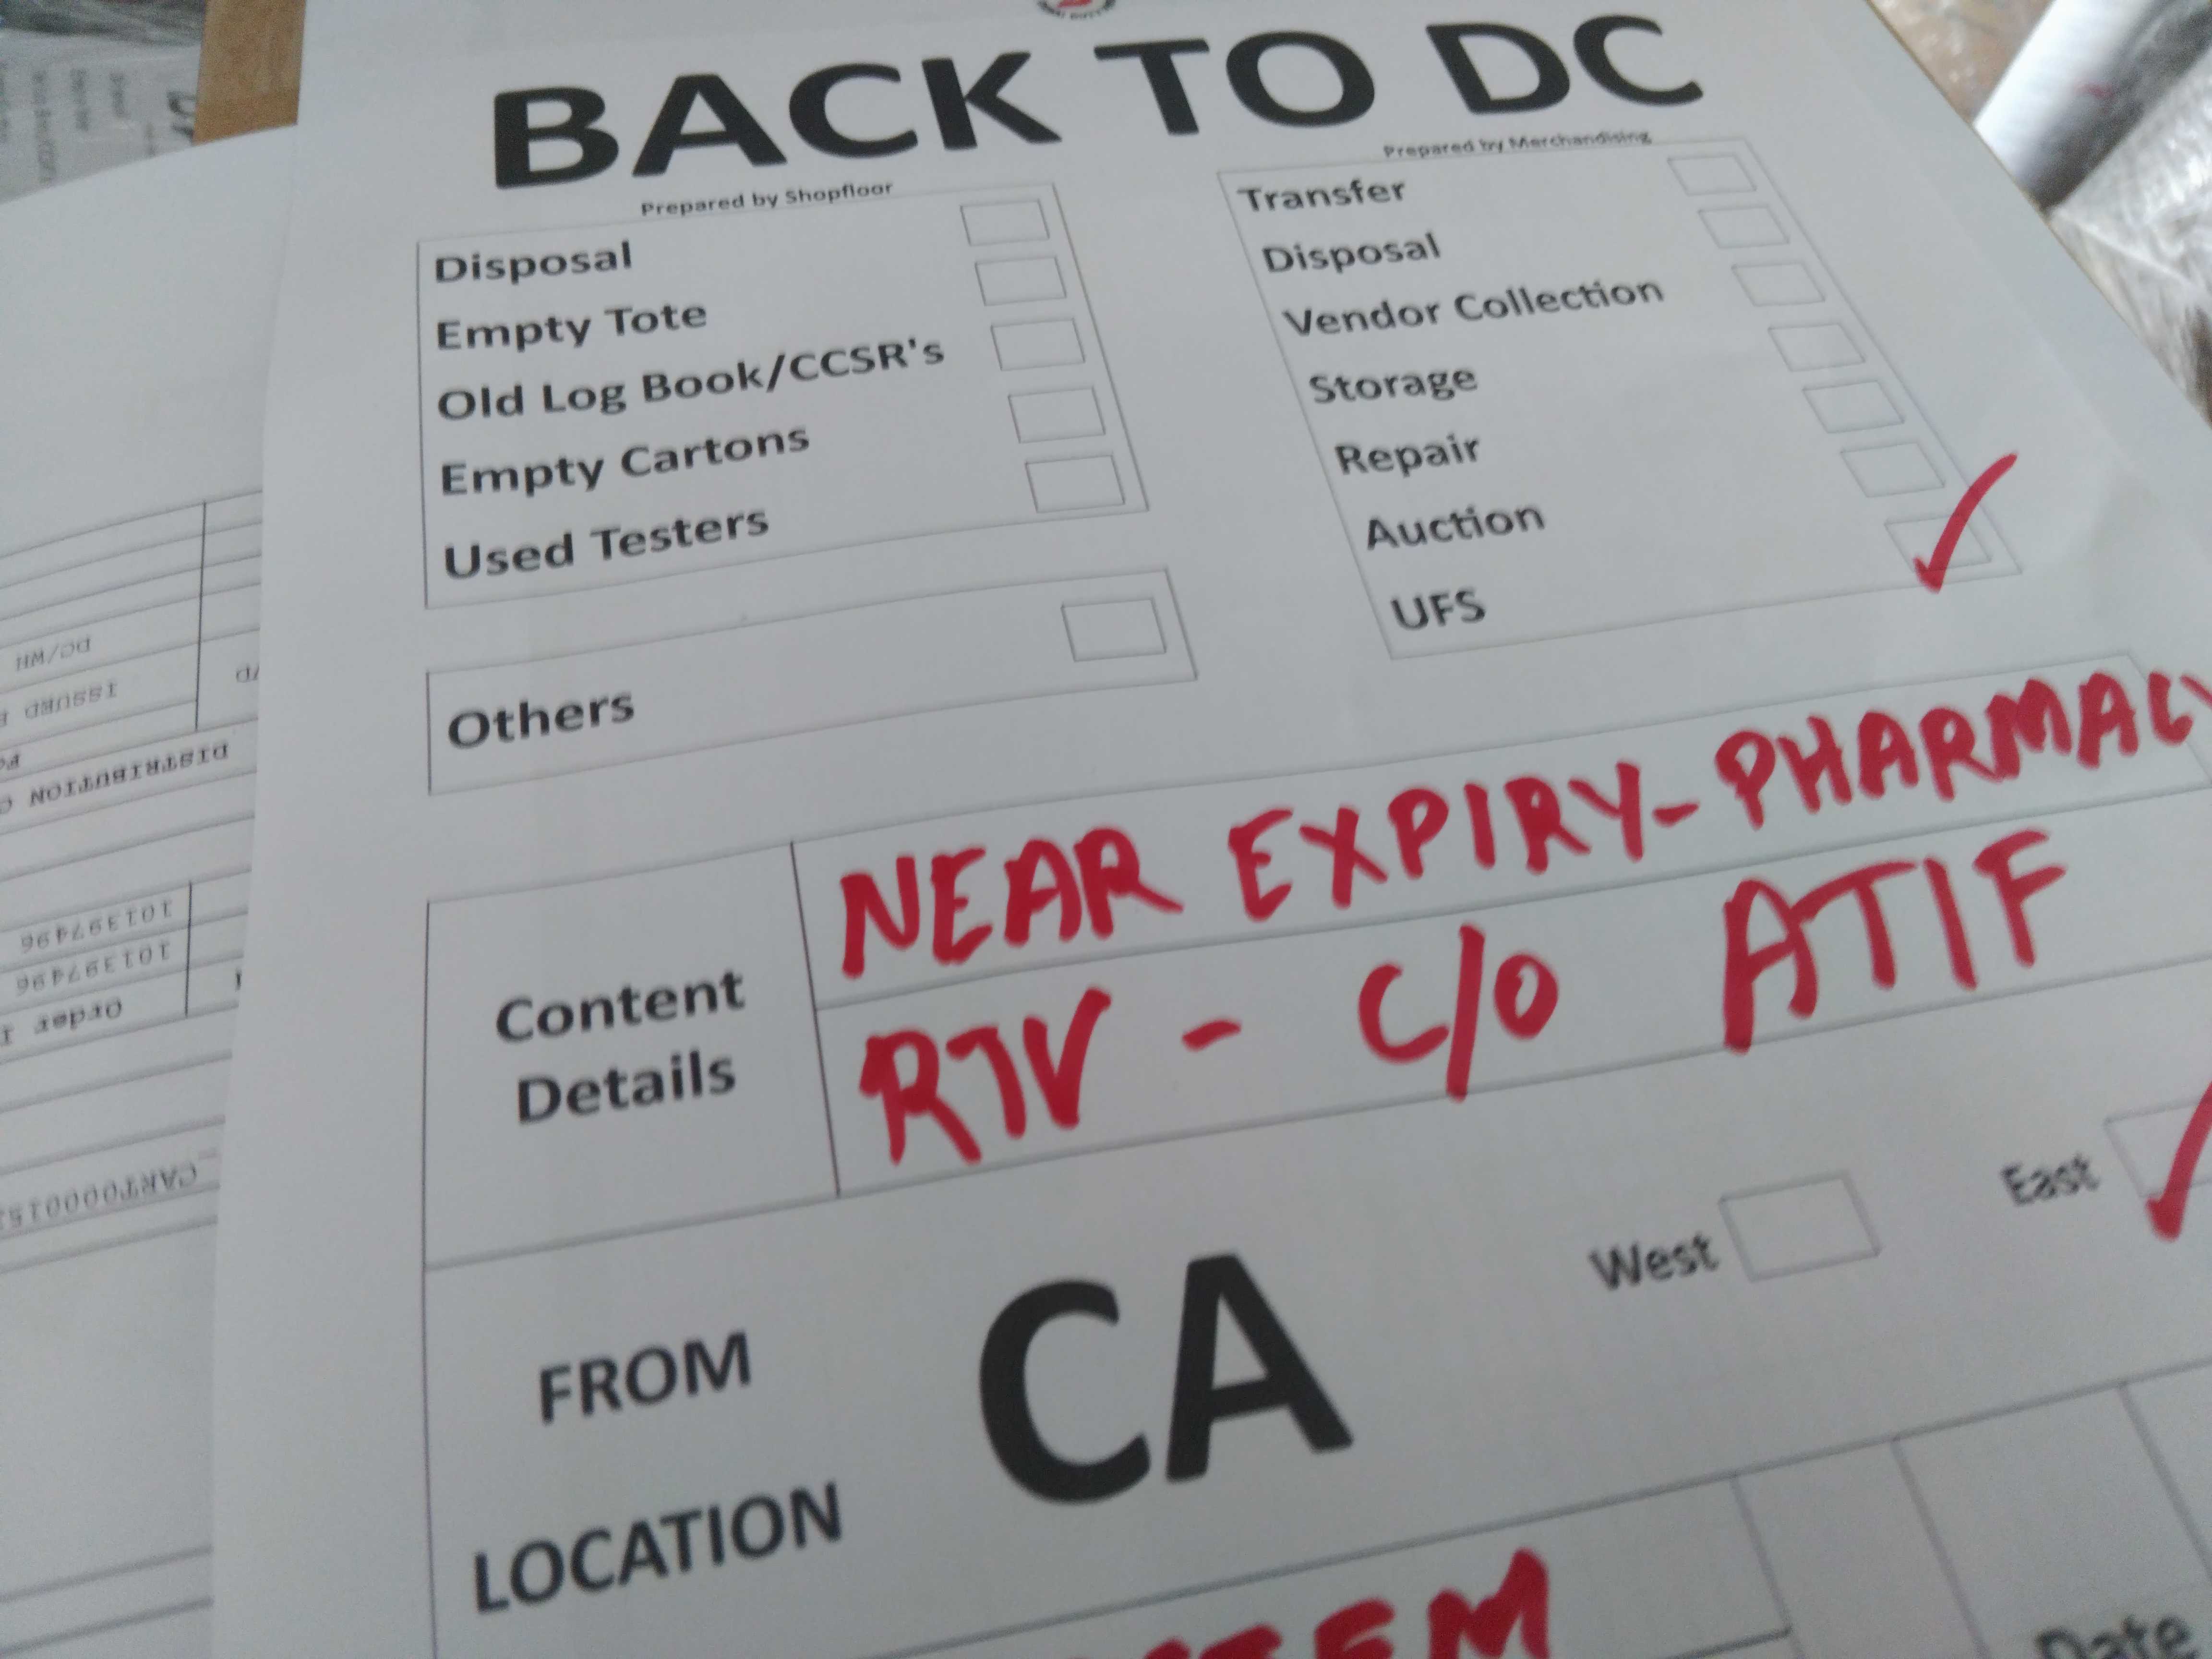 BACK TO DC
Prepared by Shopfloor
Disposal
Empty Tote
Old Log Book/CCSR's
Empty Cartons
Used Testers
Others
Prepared by Merchandising
Transfer
Disposal
Vendor Collection
Storage
Repair
Auction
UFS
Content Details
NEAR EXPIRY-PHARMACY
RTV - C/O ATIF
FROM LOCATION
CA
West
East
Date
DC/WH
ISSUED
DISTRIBUTION
101397496
101397496
Order